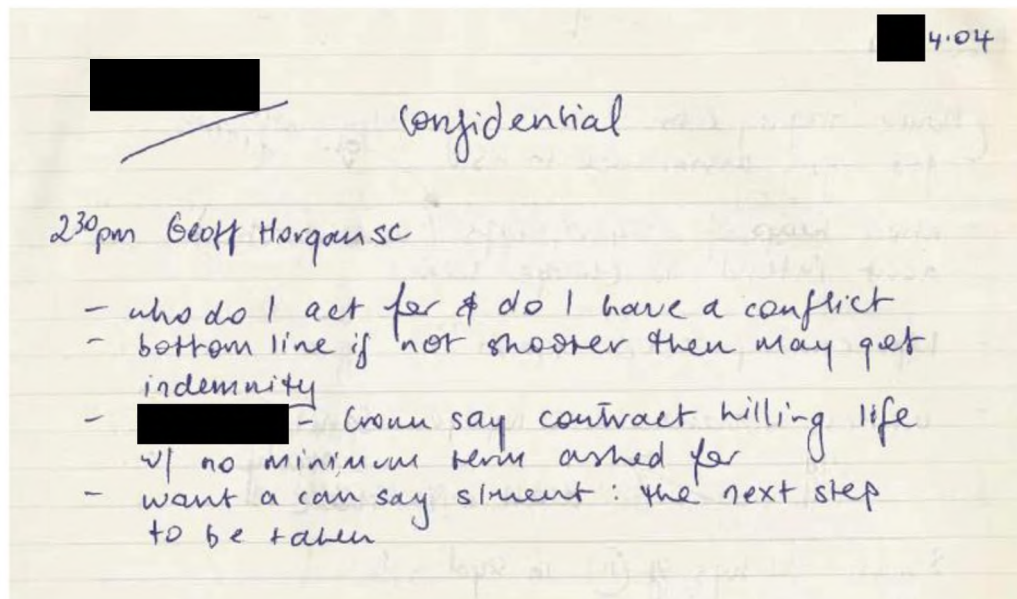 4.04
Confidential
2 30pm Geoff Horgan SC
- who do I act for & do I have a conflict
- bottom line if not shooter then may get
indemnity
- Crown say contract killing life
w/ no minimum term asked for
- want a can say s/ment : the next step
to be taken